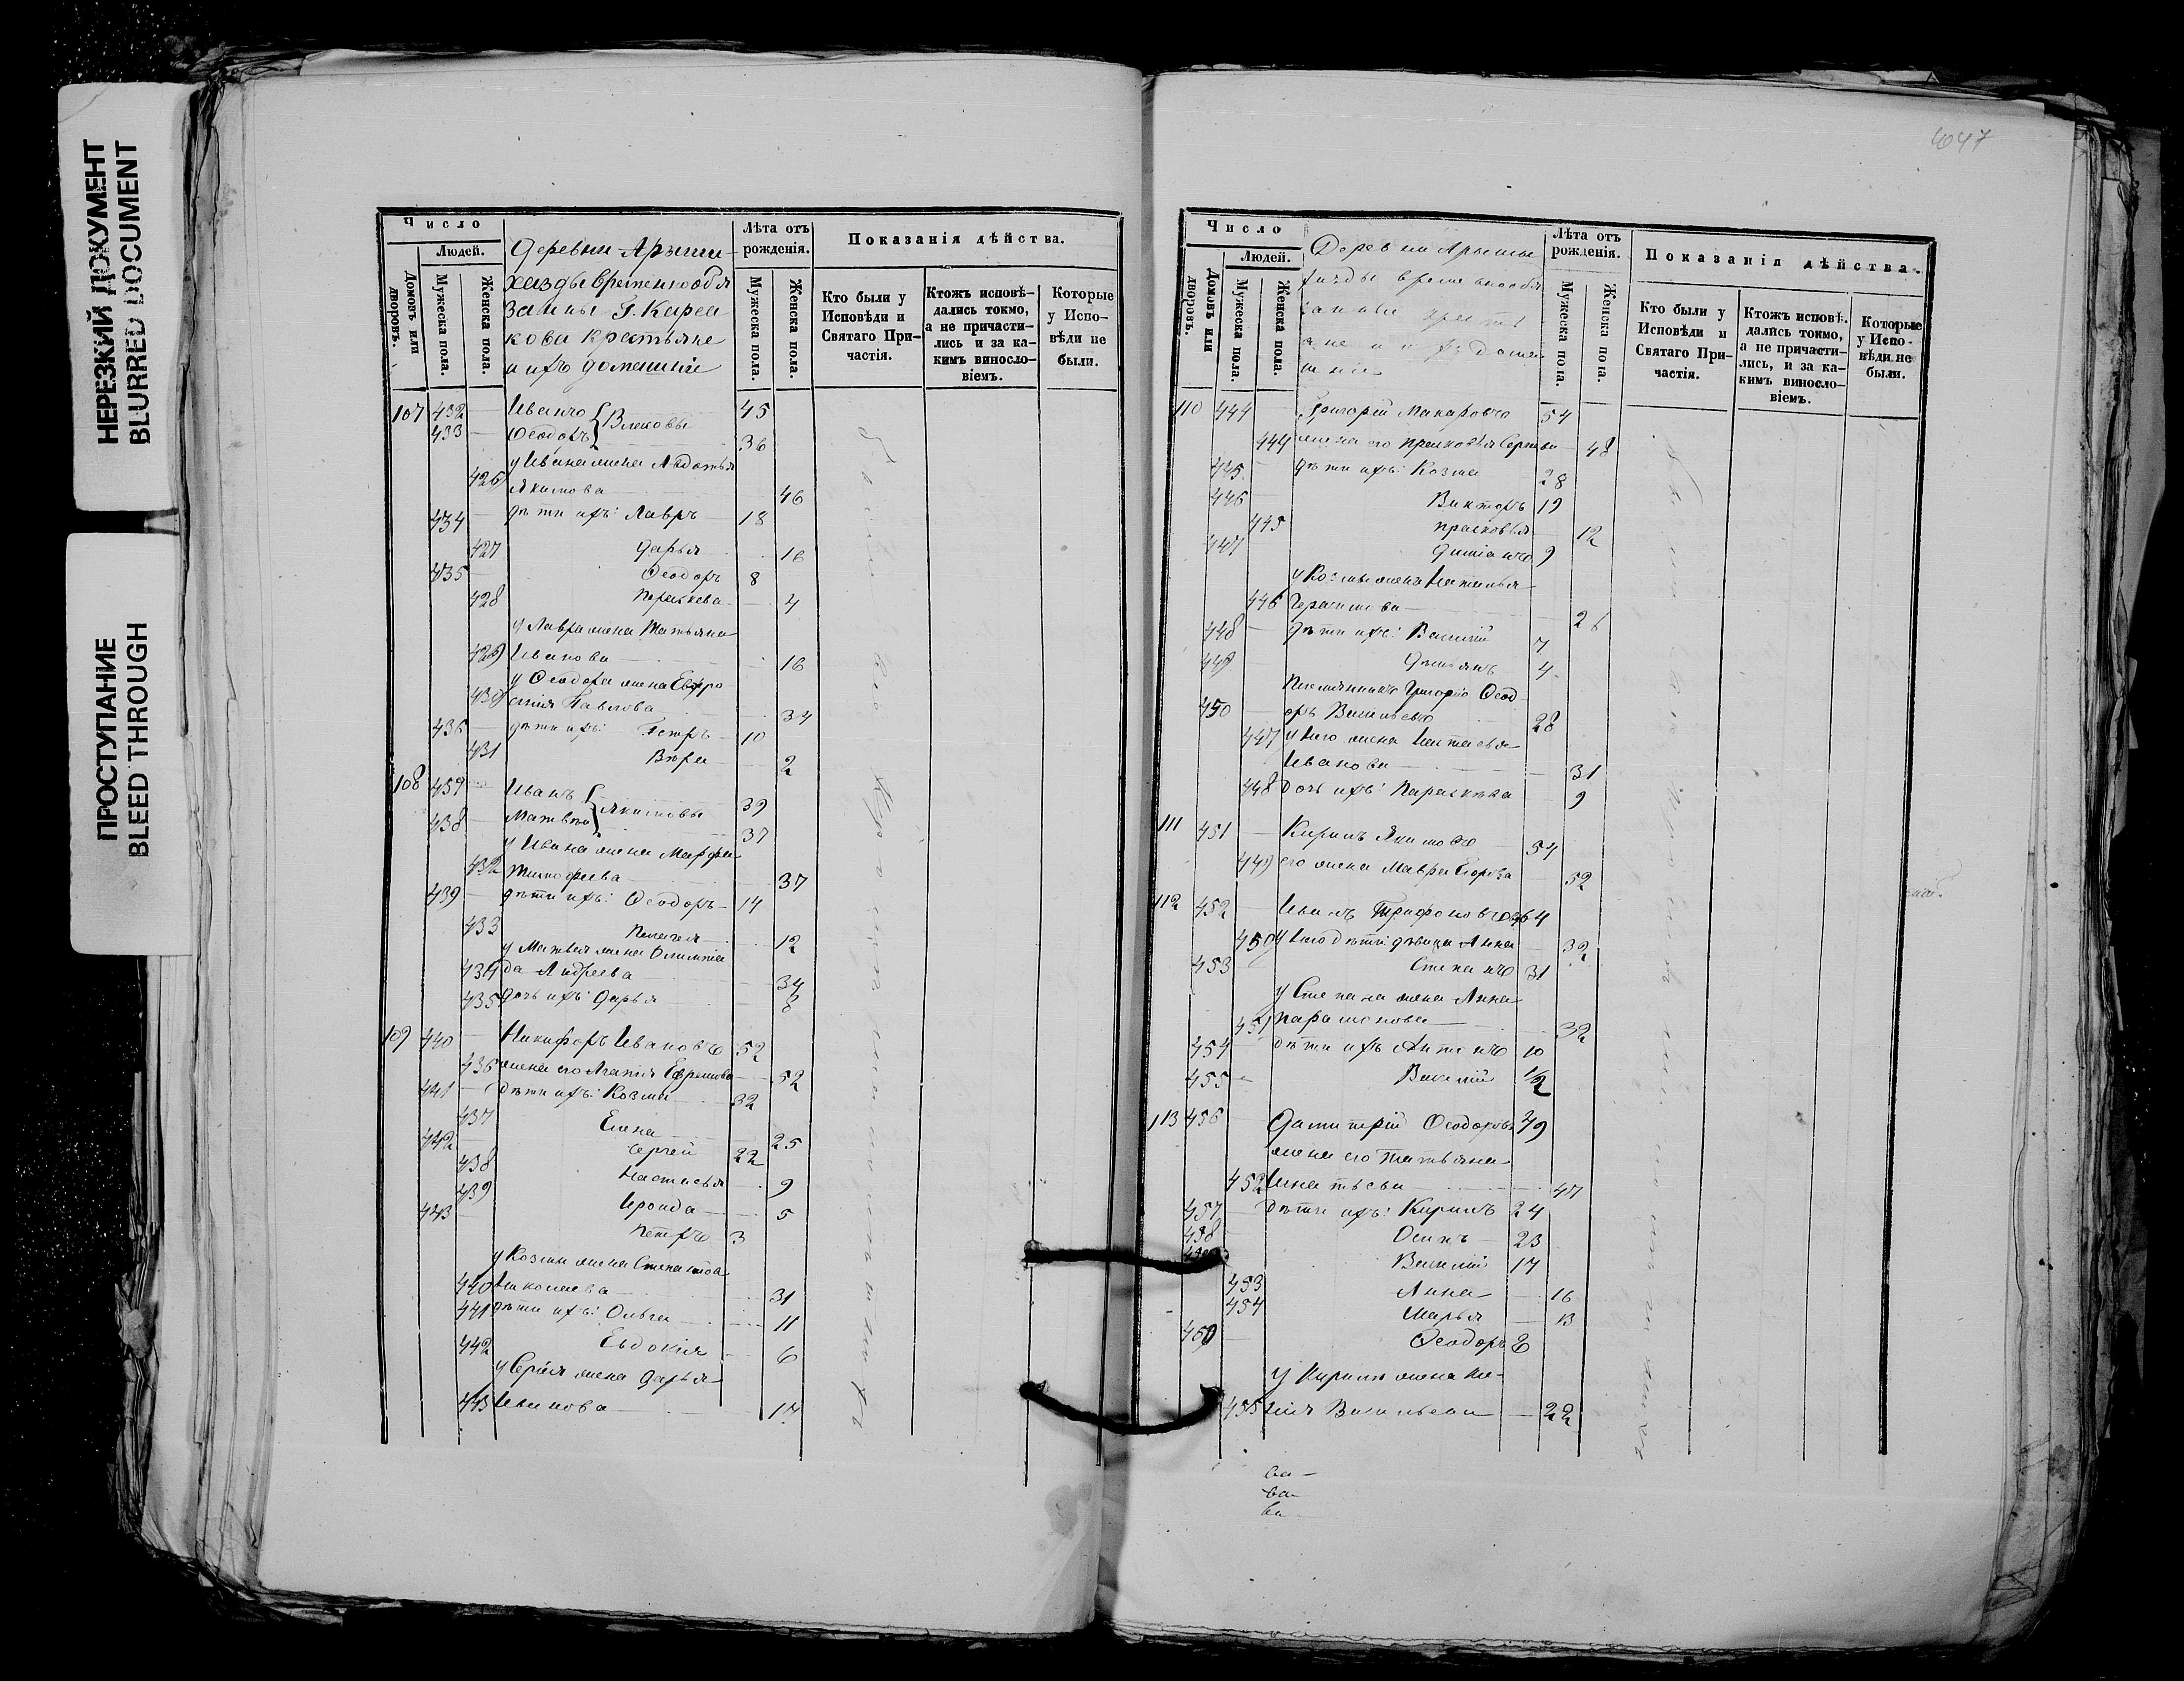 НЕРЕЗКИЙ ДОКУМЕНТ
BLURRED DOCUMENT
ПРОСТУПАНИЕ
BLEED THROUGH
Число
Людей.
Домовъ или дворовъ.
Мужеска пола.
Женска пола.
Деревни Арыши-
хазды временнообя
занные Г. Киреа
кова крестьяне
и ихъ домашніе
Лѣта отъ рожденія.
Мужеска пола.
Женска пола.
Показанія дѣйства.
Кто были у Исповѣди и Святаго Причастія.
Ктожъ исповѣдались токмо, а не причастились и за какимъ винословіемъ.
Которые у Исповѣди не были.
107 432 — Иванъ 45
433 — Ѳеодоръ 36
у Ивана жена Авдотья
426 Якимова — 46
434 — дѣти ихъ: Лавръ — 18
427 Дарья 16
435 — Ѳеодоръ 8
428 Параскева — 4
у Лавра жена Татьяна
429 Иванова — 16
у Ѳеодора жена Евфро
430 синія Павлова 34
436 — дѣти ихъ: Петръ — 10
431 Вѣра — 2
108 437 Иванъ Якимовы 39
438 — Матвѣй 37
у Ивана жена Марфа
432 Тимофеева — 37
439 — дѣти ихъ: Ѳеодоръ — 14
433 Пелагея — 12
у Матвея жена Олимпіа
434 да Андреева 34
435 дочь ихъ: Дарья 8
109 440 — Никифоръ Ивановъ 52
436 жена его Агапія Ефремова — 52
441 — дѣти ихъ: Козма 32
437 Елена 25
442 — Сергей 22
438 Настасья 9
439 Ироида — 5
443 — Петръ 3
у Козмы жена Степанида
440 Николаева — 31
441 дѣти ихъ: Ольга — 11
442 Евдокія — 6
у Сергія жена Дарья
443 Иванова — 17
647
Число
Людей.
Домовъ или дворовъ.
Мужеска пола.
Женска пола.
Деревни Арыши
хазды временнообя
занные кресть
яне и ихъ домаш
ніе
Лѣта отъ рожденія.
Мужеска пола.
Женска пола.
Показанія дѣйства.
Кто были у Исповѣди и Святаго Причастія.
Ктожъ исповѣдались токмо, а не причастились, и за какимъ винословіемъ.
Которые у Исповѣди не были.
110 444 — Григорій Макаровъ 54
444 жена его Прасковья Сергѣева 48
445 — дѣти ихъ: Козма 28
446 — Викторъ 19
445 Прасковья 12
447 Даміанъ 9
у Козмы жена Наталья
446 Герасимова — 26
448 — дѣти ихъ: Василій 7
449 Демьянъ 4
Племянникъ Григорія Ѳеод
450 — оръ Васильевъ 28
447 у него жена Настасья
Иванова — 31
448 дочь ихъ: Параскева 9
111 451 — Кирилъ Якимовъ 54
449 его жена Мавра Егорова 52
112 452 — Иванъ Трифоновъ 64
450 у него дѣти: дѣвица Анна 32
453 Степанъ 31
у Степана жена Анна
451 Парамонова — 32
454 дѣти ихъ Антонъ 10
455 — Василій 1/2
113 456 — Дамитрій Ѳеодоровъ 49
жена его Татьяна
452 Игнатьева — 47
457 — дѣти ихъ: Кирилъ 24
458 Осипъ — 23
Василій 17
453 Анна — 16
454 Марья — 13
460 — Ѳеодоръ 6
у Кирила жена Ка-
455 Васильева — 22
ва —
ва —
ва —